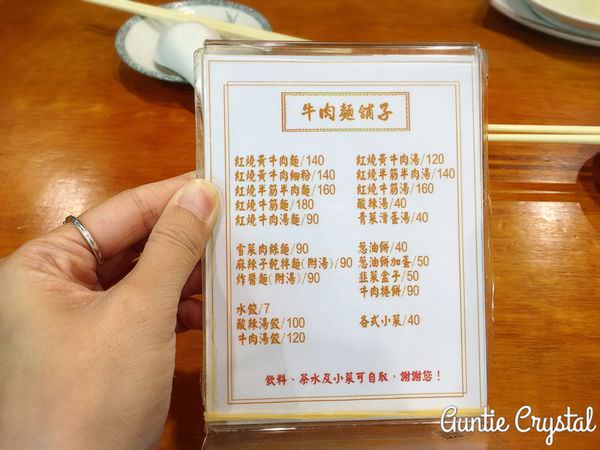 牛肉麵舖子
紅燒黃牛肉麵/140
紅燒黃牛肉細粉/140
紅燒半筋半肉麵/160
紅燒牛筋麵/180
紅燒牛肉湯麵/90
官菜肉絲麵/90
麻辣子乾拌麵(附湯)/90
炸醬麵(附湯)/90
水餃/7
酸辣湯餃/100
牛肉湯餃/120
紅燒黃牛肉湯/120
紅燒半筋半肉湯/140
紅燒牛筋湯/160
酸辣湯/40
青菜滑蛋湯/40
葱油餅/40
葱油餅加蛋/50
韭菜盒子/50
牛肉捲餅/90
各式小菜/40
飲料、茶水及小菜可自取，謝謝您！
Auntie Crystal